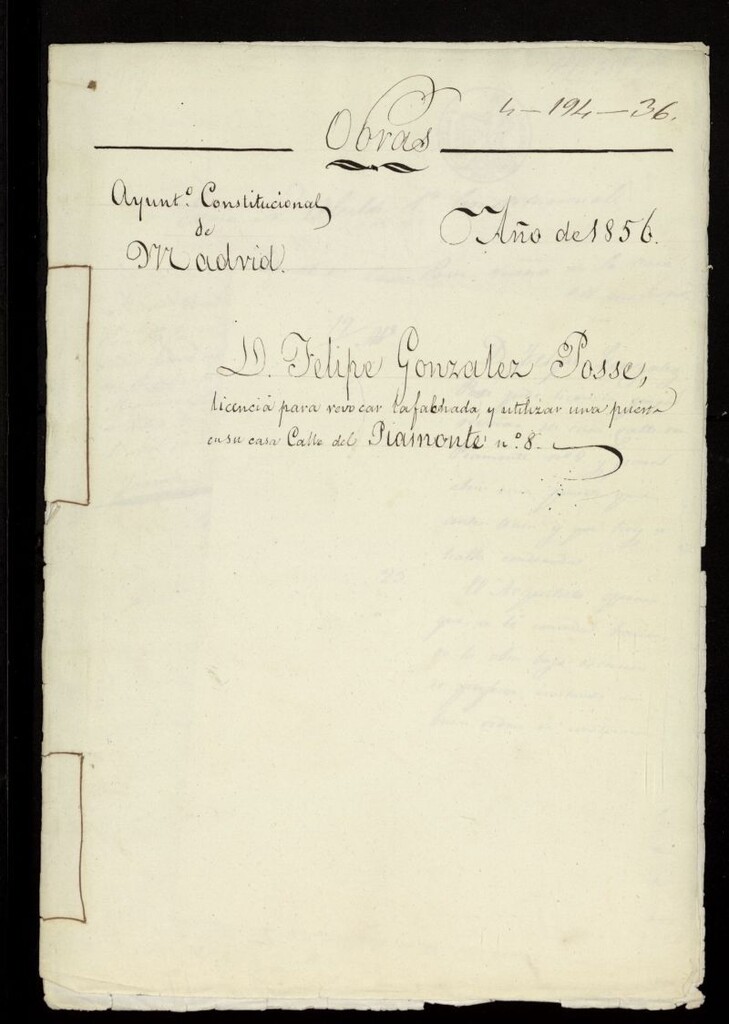 4-194-36.
Obras
Ayunt.º Constitucional
de
Madrid.
Año de 1856.
D. Felipe Gonzalez Posse,
licencia para revocar la fachada, y utilizar una puerta
en su casa Calle del Piamonte n.º 8.